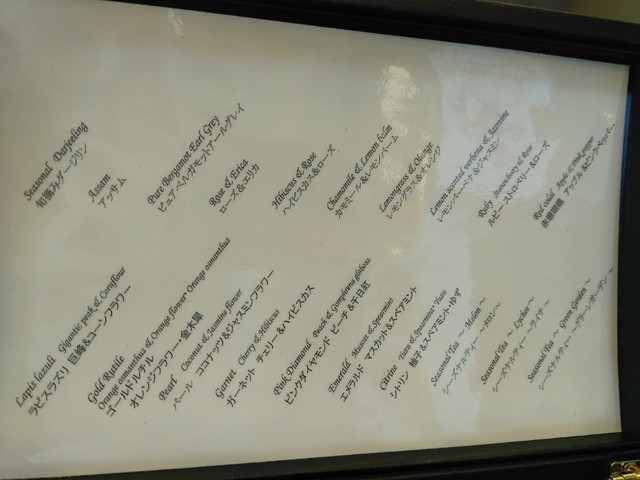 Seasonal Darjeeling
旬摘みダージリン
Assam
アッサム
Pure Bergamot Earl Grey
ピュアベルガモットアールグレイ
Rose & Erica
ローズ&エリカ
Hibiscus & Rose
ハイビスカス&ローズ
Chamomile & Lemon balm
カモミール&レモンバーム
Lemongrass & Orange
レモングラス&オレンジ
Lemon scented verbena & Jasmine
レモンバーベナ&ジャスミン
Ruby Strawberry & Rose
ルビー ストロベリー&ローズ
Red coral Apple & Pink pepper
赤珊瑚 アップル&ピンクペッパー
Lapis lazuli Gigantic peak & Cornflour
ラピスラズリ 巨峰&コーンフラワー
Gold Rutile
Orange osmanthus & Orange flower Orange osmanthus
ゴールドルチル
オレンジフラワー・金木犀
Pearl Coconut & Jasmine flower
パール ココナッツ&ジャスミンフラワー
Garnet Cherry & Hibiscus
ガーネット チェリー&ハイビスカス
Pink Diamond Peach & Gomphrena globosa
ピンクダイヤモンド ピーチ&千日紅
Emerald Muscat & Spearmint
エメラルド マスカット&スペアミント
Citrine Yuzu & Spearmint Yuzu
シトリン 柚子&スペアミントゆず
Seasonal Tea ~ Melon ~
シーズナルティー ~メロン~
Seasonal Tea ~ Lychee ~
シーズナルティー ~ライチ~
Seasonal Tea ~ Green Garden ~
シーズナルティー ~グリーンガーデン~